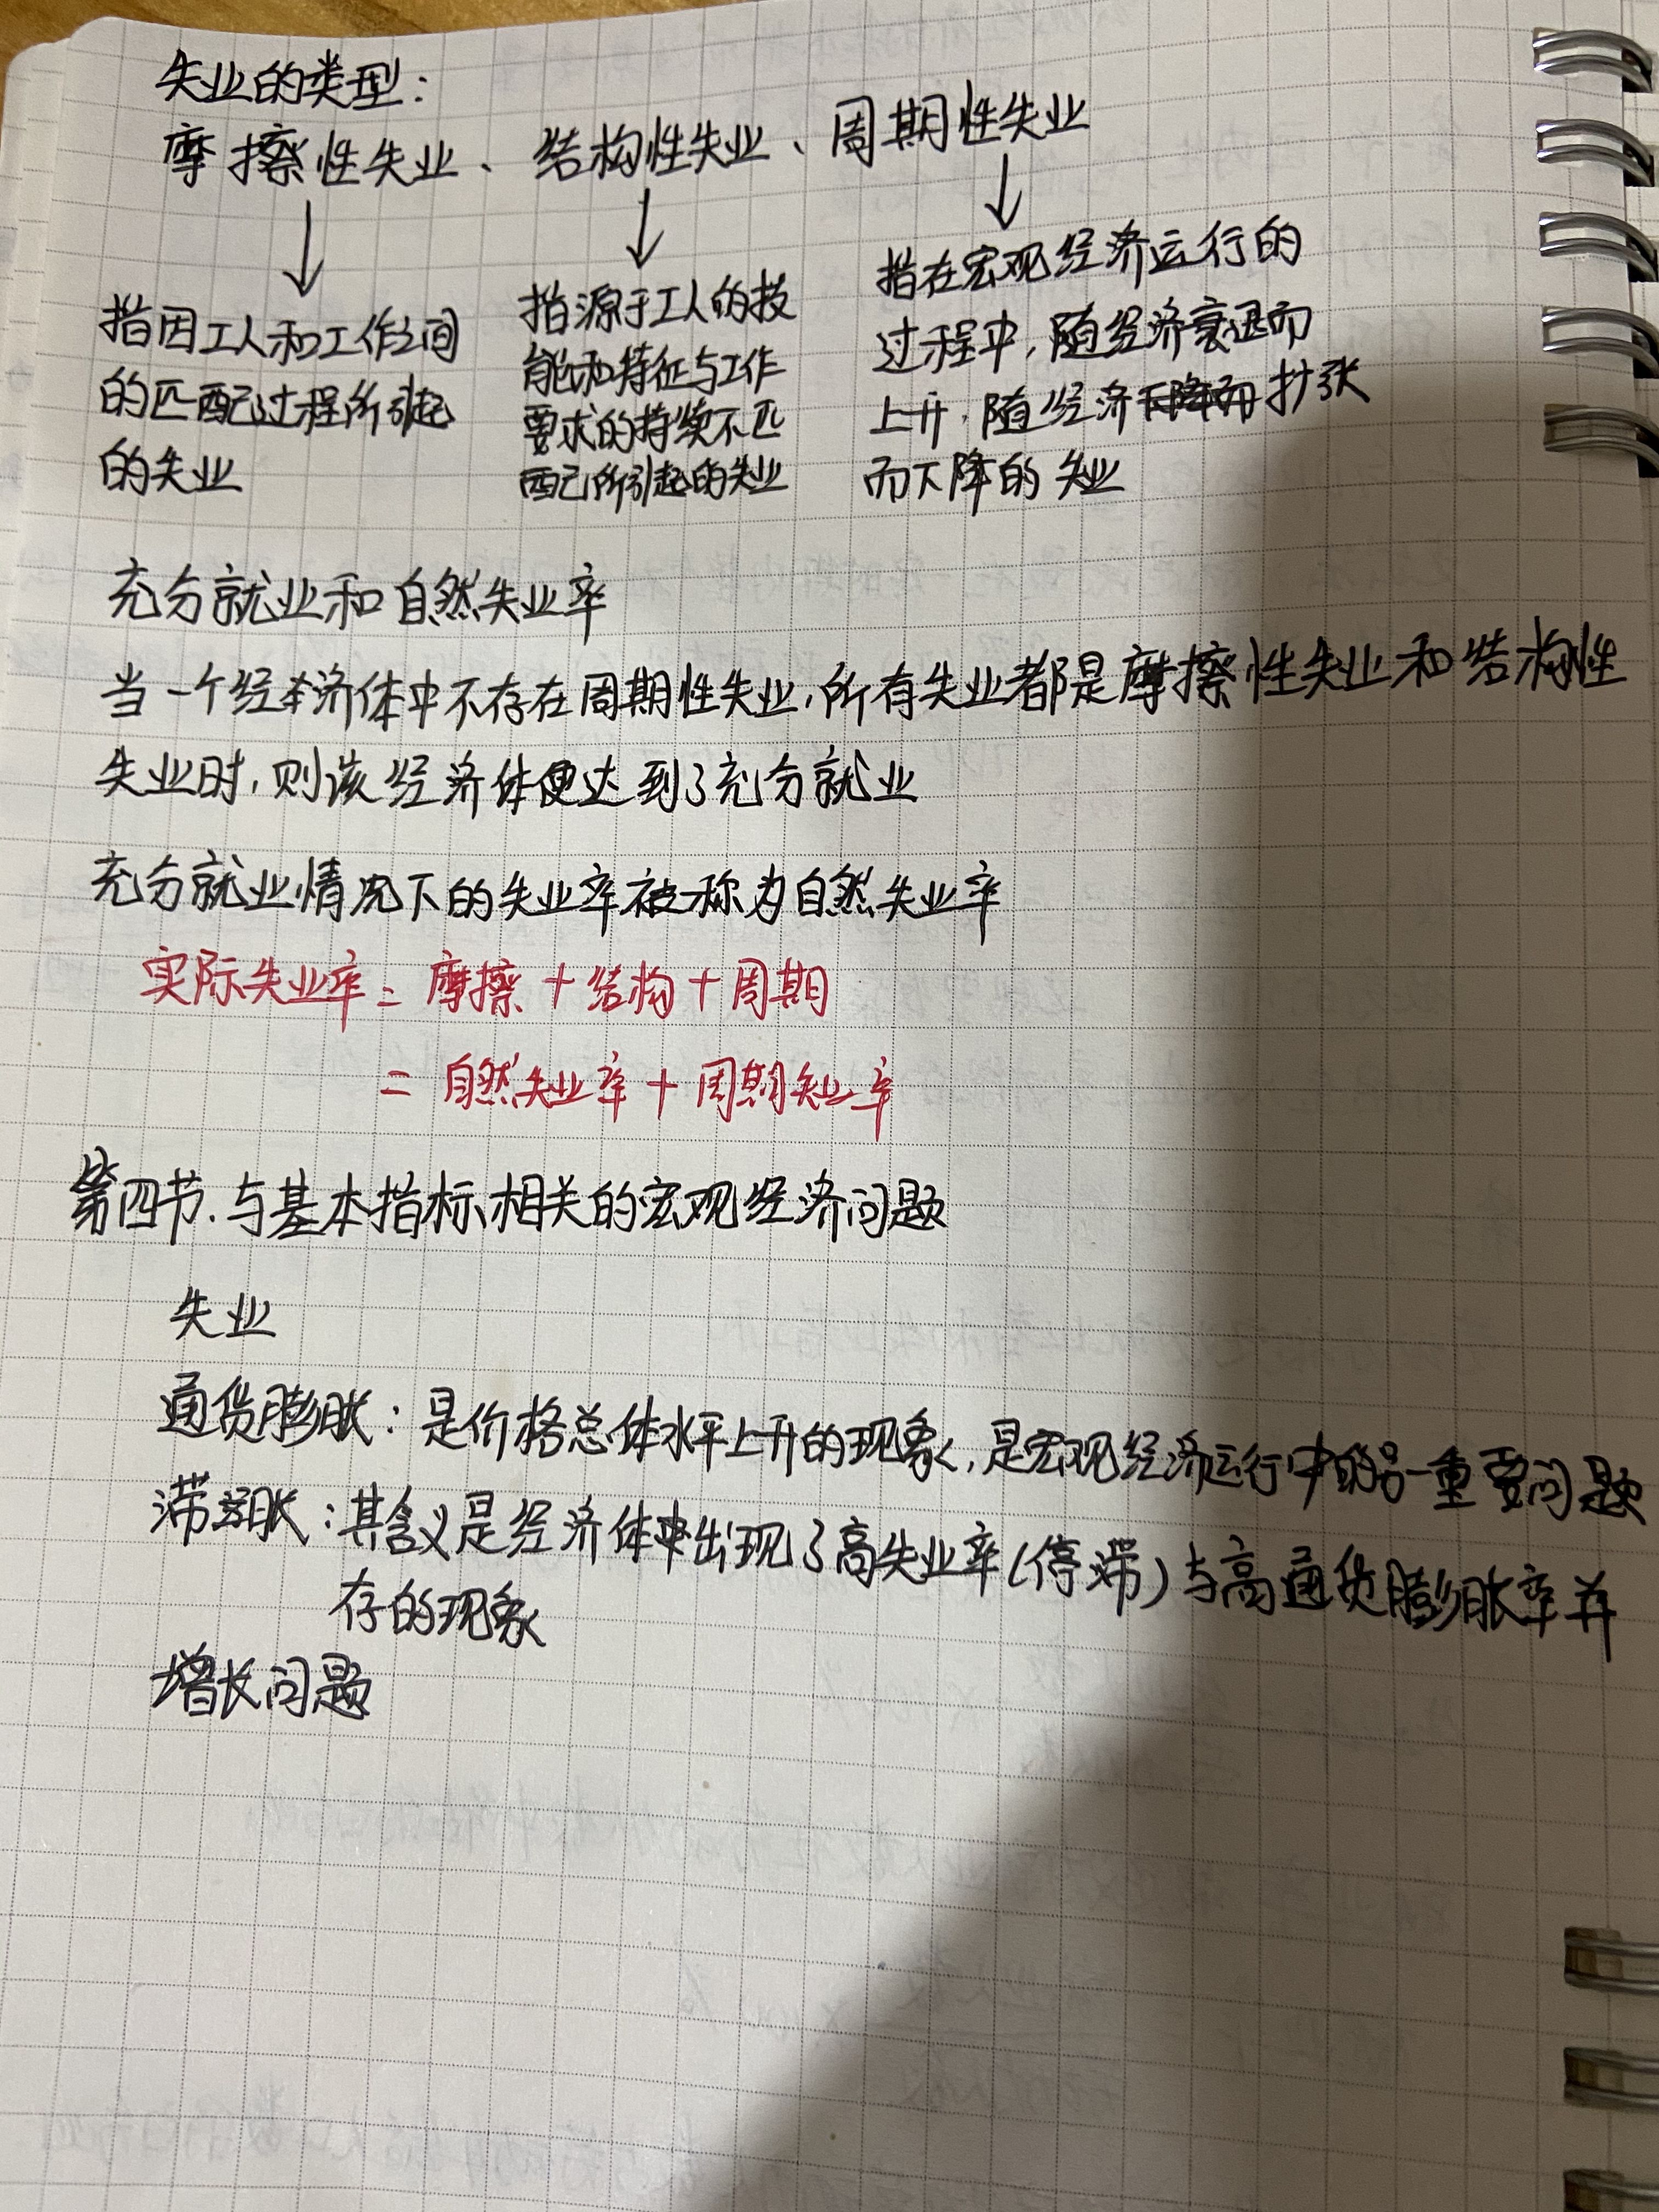 失业的类型：
摩擦性失业、结构性失业、周期性失业
指因工人和工作之间
的匹配过程所引起
的失业
指源于工人的技
能和特征与工作
要求的持续不匹
配所引起的失业
指在宏观经济运行的
过程中，随经济衰退而
上升，随经济下降而扩张
而下降的失业
充分就业和自然失业率
当一个经济体中不存在周期性失业，所有失业都是摩擦性失业和结构性
失业时，则该经济体便达到了充分就业
充分就业情况下的失业率被称为自然失业率
实际失业率=摩擦+结构+周期
=自然失业率+周期失业率
第四节.与基本指标相关的宏观经济问题
失业
通货膨胀：是价格总体水平上升的现象，是宏观经济运行中的另一重要问题
滞胀：其含义是经济体中出现了高失业率(停滞)与高通货膨胀率并
存的现象
增长问题